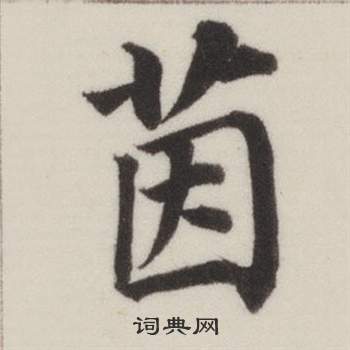 茵
词典网